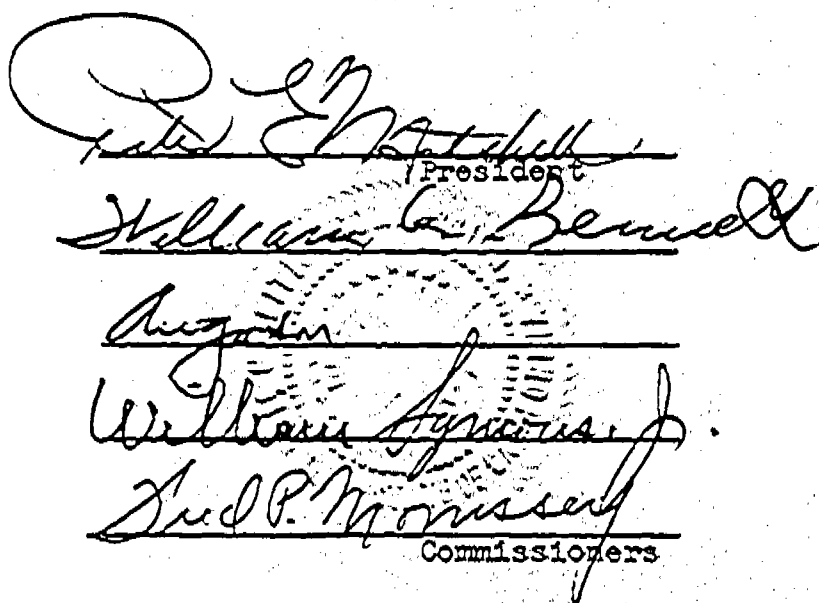 Peter E. Mitchell
President
William M. Bennett
William Symons. Jr.
Fred P. Morrissey
Commissioners